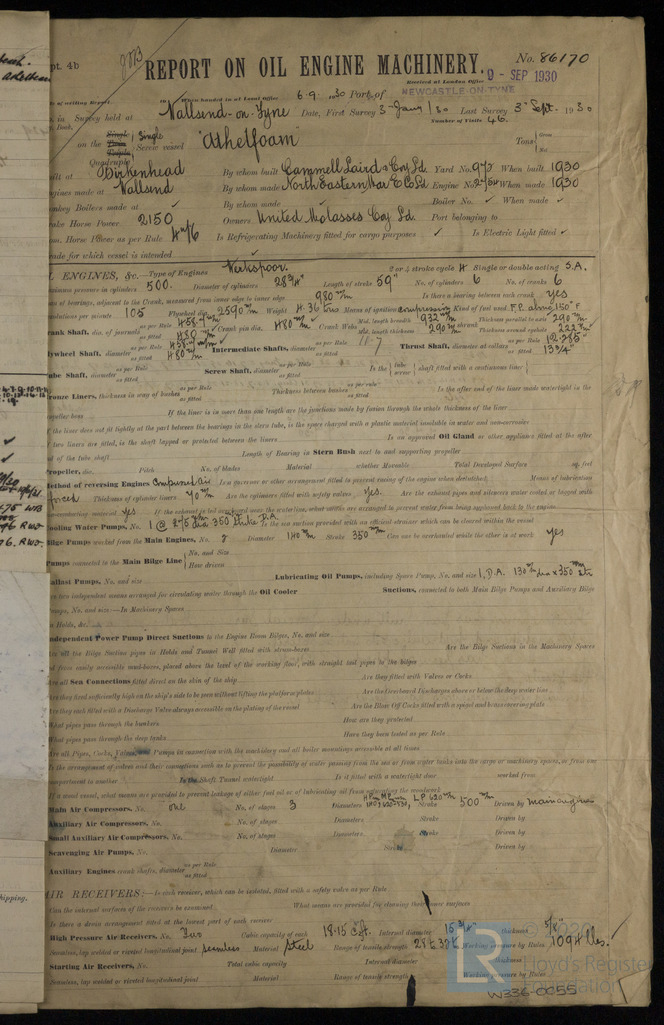 pt. 4b
REPORT ON OIL ENGINE MACHINERY.
No. 86170
Received at London Office
9 - SEP 1930
When handed in at Local Office 6. 9. 30 Port of NEWCASTLE-ON-TYNE
in Survey held at Wallsend-on-Tyne Date, First Survey 3 Jany 30 Last Survey 3 Sept. 1930
Book. Number of Visits 46.
on the Single Screw vessel "Athelfoam" Tons Gross Net
Birkenhead By whom built Cammell Laird & Coy Ld. Yard No. When built 1930
made at Wallsend By whom made North Eastern Mar E Co Ld Engine No. When made 1930
nkey Boilers made at By whom made Boiler No. When made
rake Horse Power 2150 Owners United Molasses Coy Ld. Port belonging to
om. Horse Power as per Rule Is Refrigerating Machinery fitted for cargo purposes Is Electric Light fitted
rade for which vessel is intended
L ENGINES, &c.—Type of Engines Werkspoor. 2 or 4 stroke cycle 4 Single or double acting S.A.
ximum pressure in cylinders 500. Diameter of cylinders 28¾" Length of stroke 59" No. of cylinders 6 No. of cranks 6
n of bearings, adjacent to the Crank, measured from inner edge to inner edge 980 m/m Is there a bearing between each crank yes
volutions per minute 105 Flywheel dia. 2590 m/m Weight Means of ignition compression Kind of fuel used F.P. above 150° F
rank Shaft, dia. of journals as per Rule as fitted Crank pin dia. 480 m/m Crank Webs Mid. length breadth Mid. length thickness 290 m/m Thickness parallel to axis 290 Thickness around eyehole 222 m/m
lywheel Shaft, diameter as per Rule as fitted 480 m/m Intermediate Shafts, diameter as per Rule as fitted Thrust Shaft, diameter at collars as per Rule 12.385 as fitted 13¾
ube Shaft, diameter as per Rule as fitted Screw Shaft, diameter as per Rule as fitted Is the tube screw shaft fitted with a continuous liner
ronze Liners, thickness in way of bushes as per Rule as fitted Thickness between bushes as per rule as fitted Is the after end of the liner made watertight in the
opeller boss If the liner is in more than one length are the junctions made by fusion through the whole thickness of the liner
f the liner does not fit tightly at the part between the bearings in the stern tube, is the space charged with a plastic material insoluble in water and non-corrosive
f two liners are fitted, is the shaft lapped or protected between the liners Is an approved Oil Gland or other appliance fitted at the after
nd of the tube shaft Length of Bearing in Stern Bush next to and supporting propeller
ropeller, dia. Pitch No. of blades Material whether Moveable Total Developed Surface sq. feet
Method of reversing Engines Compressed air Is a governor or other arrangement fitted to prevent racing of the engine when declutched Means of lubrication
forced Thickness of cylinder liners 70 m/m Are the cylinders fitted with safety valves yes. Are the exhaust pipes and silencers water cooled or lagged with
n-conducting material yes If the exhaust is led overboard near the waterline, what means are arranged to prevent water from being syphoned back to the engine
ooling Water Pumps, No. 1 @ 275 m/m dia 350 Stroke D.A. Is the sea suction provided with an efficient strainer which can be cleared within the vessel
ilge Pumps worked from the Main Engines, No. 2 Diameter 140 m/m Stroke 350 m/m Can one be overhauled while the other is at work yes
umps connected to the Main Bilge Line No. and Size How driven
allast Pumps, No. and size Lubricating Oil Pumps, including Spare Pump, No. and size 1, D.A. 130 m/m dia x 350 m/m str
re two independent means arranged for circulating water through the Oil Cooler Suctions, connected to both Main Bilge Pumps and Auxiliary Bilge
umps, No. and size:—In Machinery Spaces
n Holds, &c.
ndependent Power Pump Direct Suctions to the Engine Room Bilges, No. and size
re all the Bilge Suction pipes in Holds and Tunnel Well fitted with strum-boxes Are the Bilge Suctions in the Machinery Spaces
d from easily accessible mud-boxes, placed above the level of the working floor, with straight tail pipes to the bilges
re all Sea Connections fitted direct on the skin of the ship Are they fitted with Valves or Cocks
re they fixed sufficiently high on the ship's side to be seen without lifting the platform plates Are the Overboard Discharges above or below the deep water line
re they each fitted with a Discharge Valve always accessible on the plating of the vessel Are the Blow Off Cocks fitted with a spigot and brass covering plate
What pipes pass through the bunkers How are they protected
What pipes pass through the deep tanks Have they been tested as per Rule
re all Pipes, Cocks, Valves, and Pumps in connection with the machinery and all boiler mountings accessible at all times
s the arrangement of valves and their connections such as to prevent the possibility of water passing from the sea or from water tanks into the cargo or machinery spaces, or from one
mpartment to another Is the Shaft Tunnel watertight Is it fitted with a watertight door worked from
f a wood vessel, what means are provided to prevent leakage of either fuel oil or of lubricating oil from saturating the woodwork
Main Air Compressors, No. one No. of stages 3 Diameters Stroke 500 m/m Driven by main engine
Auxiliary Air Compressors, No. No. of stages Diameters Stroke Driven by
Small Auxiliary Air Compressors, No. No. of stages Diameters Stroke Driven by
Scavenging Air Pumps, No. Diameter Stroke Driven by
Auxiliary Engines crank shafts, diameter as per Rule as fitted
AIR RECEIVERS:—Is each receiver, which can be isolated, fitted with a safety valve as per Rule
Can the internal surfaces of the receivers be examined What means are provided for cleaning their inner surfaces
Is there a drain arrangement fitted at the lowest part of each receiver
High Pressure Air Receivers, No. Two Cubic capacity of each 18.15 c.ft. Internal diameter 15¾" thickness 5/8"
Seamless, lap welded or riveted longitudinal joint seamless Material Steel Range of tensile strength 28 to 32 Working pressure by Rules 1094 lbs.
Starting Air Receivers, No. Total cubic capacity Internal diameter thickness
Seamless, lap welded or riveted longitudinal joint Material Range of tensile strength Working pressure by Rules
LR
Lloyd's Register
Foundation
W336-0055
hipping.